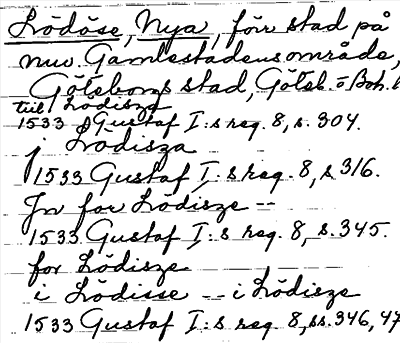 Lödöse, Nya, förr stad på
nuv. Gamlestadens område,
Göteborgs stad, Göteb. o Boh. l
till Lödisze
1533 Gustaf I:s reg. 8, s. 304.
j Lödisza
1533 Gustaf I:s reg. 8, s 316.
Jn for Lödisze --
1533 Gustaf I:s reg. 8, s. 345.
for Lödisze
i Lödisse -- i Lödisze
1533 Gustaf I:s reg. 8, ss. 346, 47